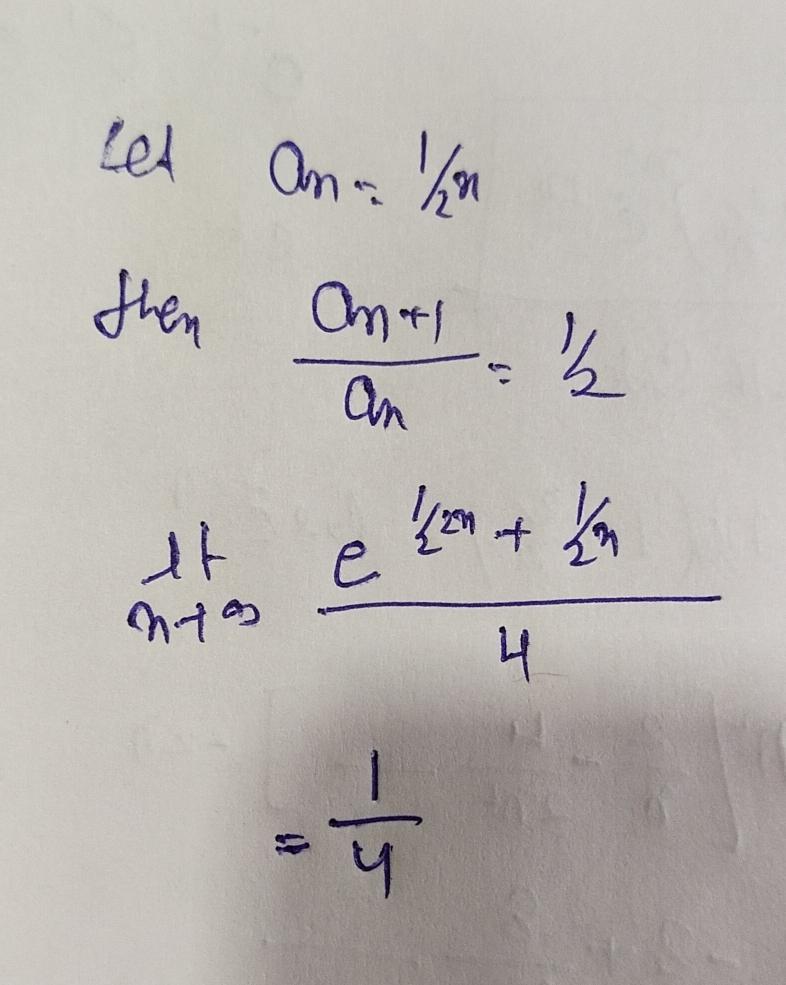 Let an = 1/2^n
then an+1 / an = 1/2
lt n→∞ e^(1/2^2n + 1/2^n) / 4
= 1/4